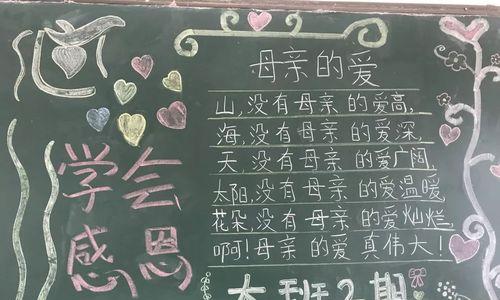 母亲的爱
山,没有母亲的爱高,
海,没有母亲的爱深,
天,没有母亲的爱广阔,
太阳,没有母亲的爱温暖,
花朵,没有母亲的爱灿烂,
啊!母亲的爱真伟大!
学会
感恩
大班2期